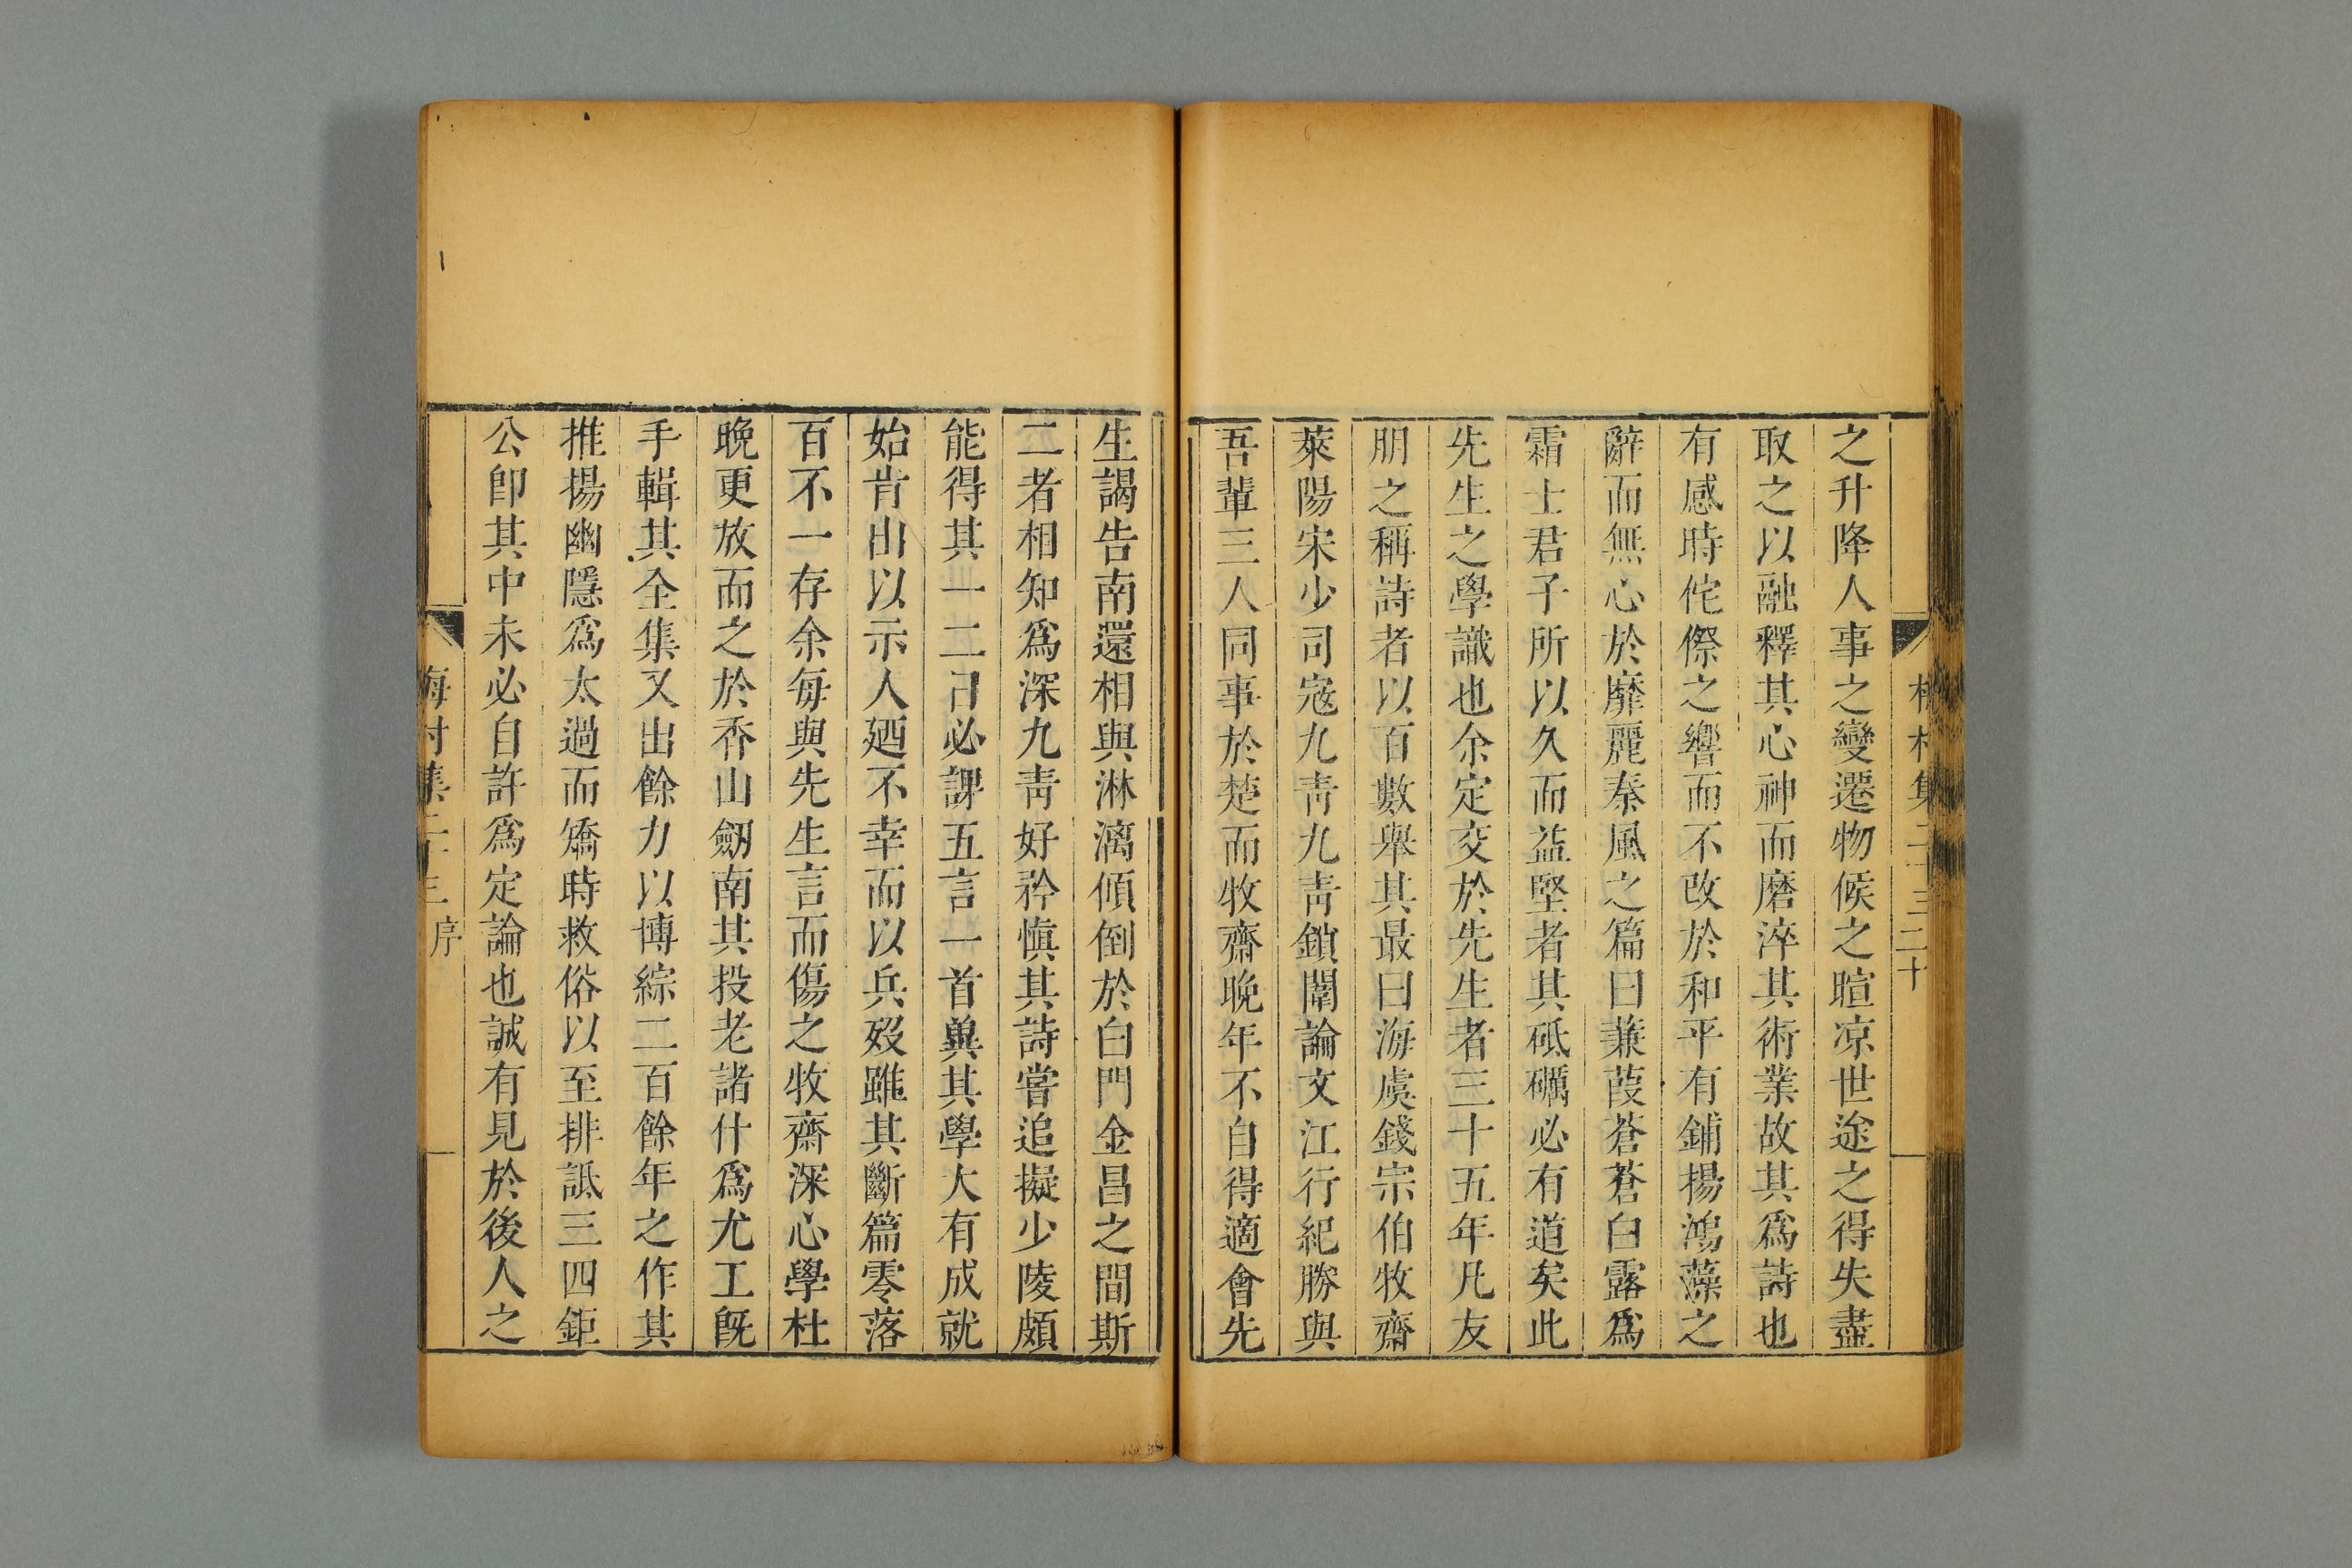 之升降人事之變遷物候之暄凉世途之得失盡
取之以融釋其心神而磨淬其術業故其爲詩也
有感時侘傺之響而不改於和平有鋪揚鴻藻之
辭而無心於靡麗秦風之篇曰蒹葭蒼蒼白露爲
霜士君子所以久而益堅者其砥礪必有道矣此
先生之學識也余定交於先生者三十五年凡友
朋之稱詩者以百數舉其最曰海虞錢宗伯牧齋
萊陽宋少司寇九靑九靑鎖闈論文江行紀勝與
吾輩三人同事於楚而牧齋晚年不自得適會先
生謁告南還相與淋漓傾倒於白門金昌之間斯
二者相知爲深九靑好矜愼其詩嘗追擬少陵頗
能得其一二日必課五言一首兾其學大有成就
始肯出以示人廼不幸而以兵歿雖其斷篇零落
百不一存余每與先生言而傷之牧齋深心學杜
晚更放而之於香山劒南其投老諸什爲尤工旣
手輯其全集又出餘力以博綜二百餘年之作其
推揚幽隱爲太過而矯時救俗以至排詆三四鉅
公卽其中未必自許爲定論也誠有見於後人之
梅村集二十三 序